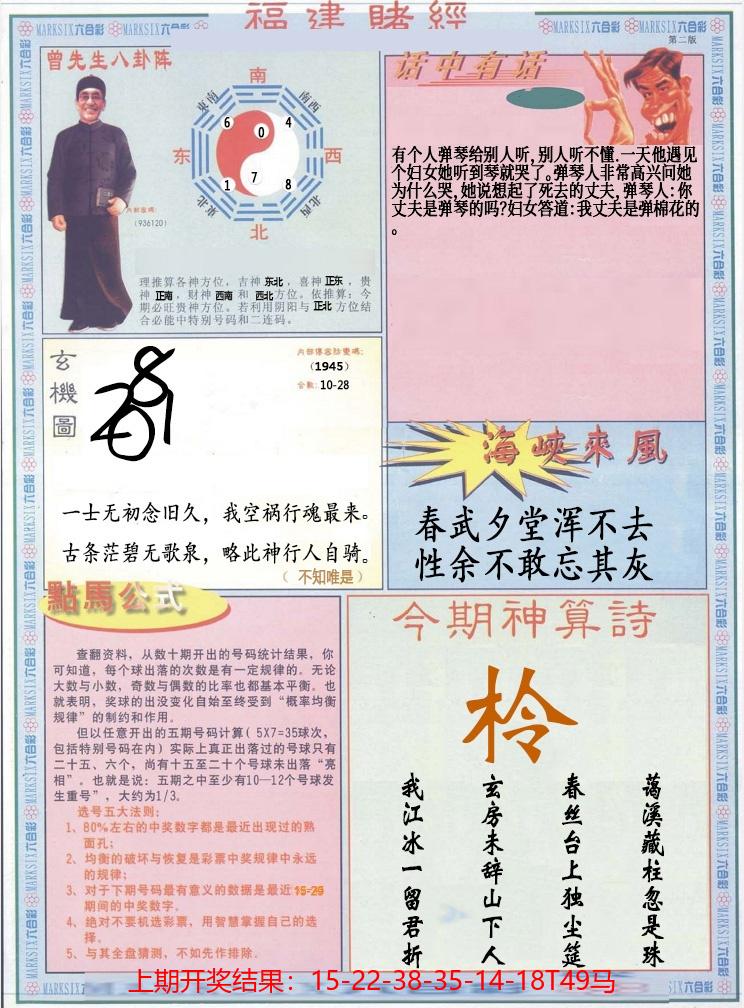 福建賭經
MARKSIX六合彩 MARKSIX六合彩 MARKSIX六合彩 MARKSIX六合彩
第二版
曾先生八卦阵
南
东南
南西
6
0
4
东
西
1
7
8
东北
北西
北
内部密码:
(936120)
理推算各神方位，吉神 东北，喜神 正东，贵
神 正南，财神 西南 和 西北 方位。依推算：今
期必旺贵神方位。若利用阴阳与 正北 方位结
合必能中特别号码和二连码。
话中有话
有个人弹琴给别人听,别人听不懂.一天他遇见
个妇女她听到琴就哭了。弹琴人非常高兴问她
为什么哭,她说想起了死去的丈夫,弹琴人:你
丈夫是弹琴的吗?妇女答道:我丈夫是弹棉花的
。
玄機圖
(1945)
合数: 10-28
一士无初念旧久，我空祸行魂最来。
古条茫碧无歌泉，略此神行人自骑。
（ 不知唯是）
海峽來風
春武夕堂浑不去
性余不敢忘其灰
點馬公式
查翻资料，从数十期开出的号码统计结果，你
可知道，每个球出落的次数是有一定规律的。无论
大数与小数，奇数与偶数的比率也都基本平衡。也
就表明，奖球的出没变化自始至终受到“概率均衡
规律”的制约和作用。
但以任意开出的五期号码计算( 5X7=35球次，
包括特别号码在内) 实际上真正出落过的号球只有
二十五、六个，尚有十五至二十个号球未出落“亮
相”。也就是说：五期之中至少有10—12个号球发
生重号”，大约为1/3。
选号五大法则：
1、80%左右的中奖数字都是最近出现过的熟
面孔；
2、均衡的破坏与恢复是彩票中奖规律中永远
的规律；
3、对于下期号码最有意义的数据是最近 15-29
期间的中奖数字。
4、绝对不要机选彩票，用智慧掌握自己的选
择。
5、与其全盘猜测，不如先作排除．
今期神算詩
柃
蔼溪藏柱忽是珠
春丝台上独尘筵
玄房未辞山下人
我江冰一留君折
上期开奖结果：15-22-38-35-14-18T49马